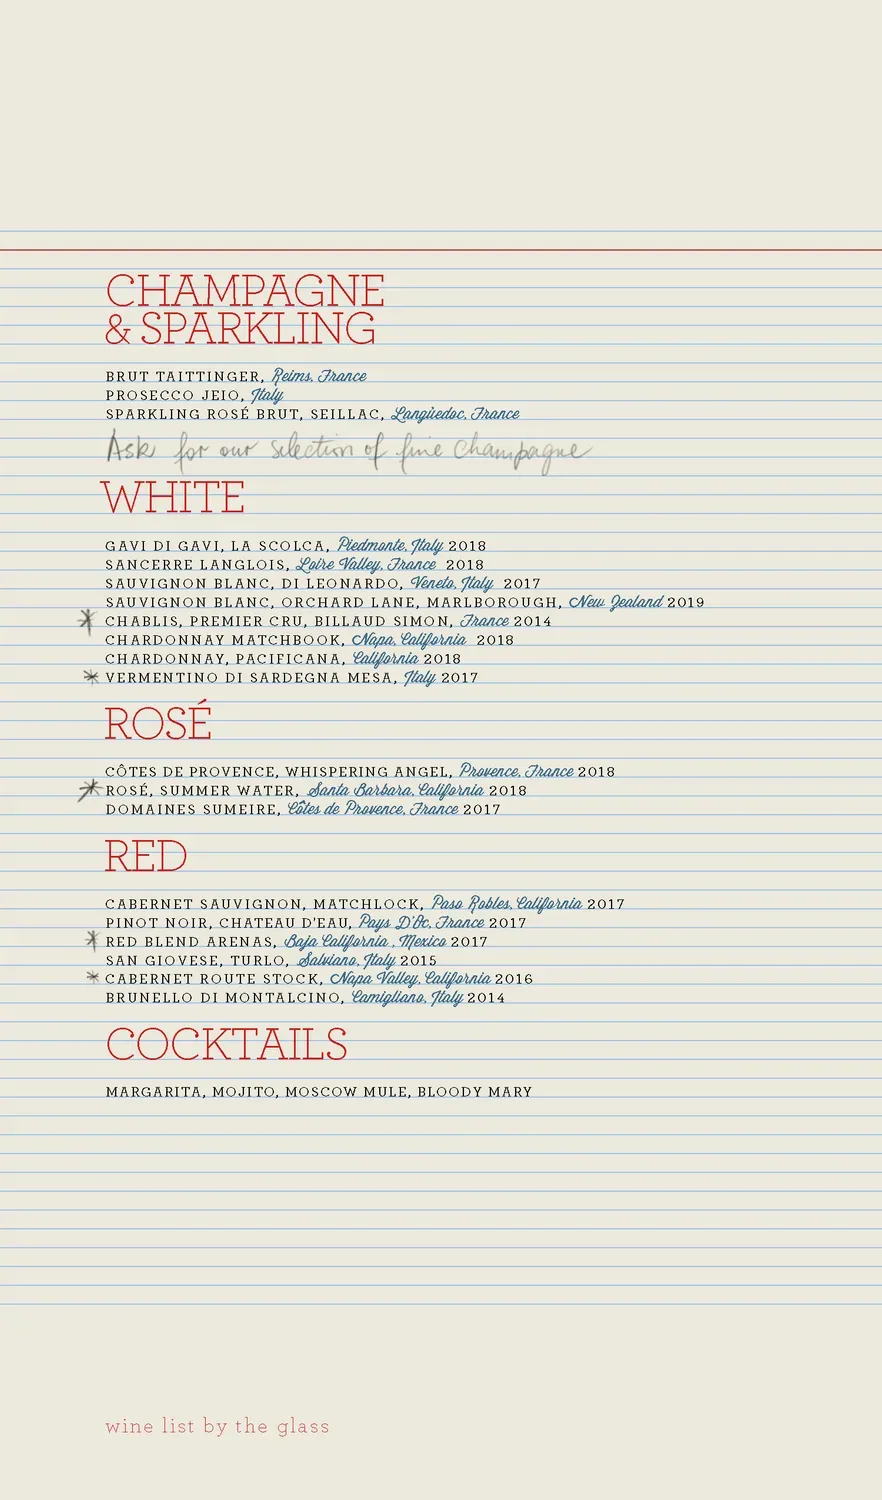 CHAMPAGNE
& SPARKLING
BRUT TAITTINGER, Reims, France
PROSECCO JEIO, Italy
SPARKLING ROSÉ BRUT, SEILLAC, Langüedoc, France
Ask for our selection of fine Champagne
WHITE
GAVI DI GAVI, LA SCOLCA, Piedmonte, Italy 2018
SANCERRE LANGLOIS, Loire Valley, France 2018
SAUVIGNON BLANC, DI LEONARDO, Veneto, Italy 2017
SAUVIGNON BLANC, ORCHARD LANE, MARLBOROUGH, New Zealand 2019
* CHABLIS, PREMIER CRU, BILLAUD SIMON, France 2014
CHARDONNAY MATCHBOOK, Napa, California 2018
CHARDONNAY, PACIFICANA, California 2018
* VERMENTINO DI SARDEGNA MESA, Italy 2017
ROSÉ
CÔTES DE PROVENCE, WHISPERING ANGEL, Provence, France 2018
* ROSÉ, SUMMER WATER, Santa Barbara, California 2018
DOMAINES SUMEIRE, Côtes de Provence, France 2017
RED
CABERNET SAUVIGNON, MATCHLOCK, Paso Robles, California 2017
PINOT NOIR, CHATEAU D'EAU, Pays D'Oc, France 2017
* RED BLEND ARENAS, Baja California , Mexico 2017
SAN GIOVESE, TURLO, Salviano, Italy 2015
* CABERNET ROUTE STOCK, Napa Valley, California 2016
BRUNELLO DI MONTALCINO, Camigliano, Italy 2014
COCKTAILS
MARGARITA, MOJITO, MOSCOW MULE, BLOODY MARY
wine list by the glass